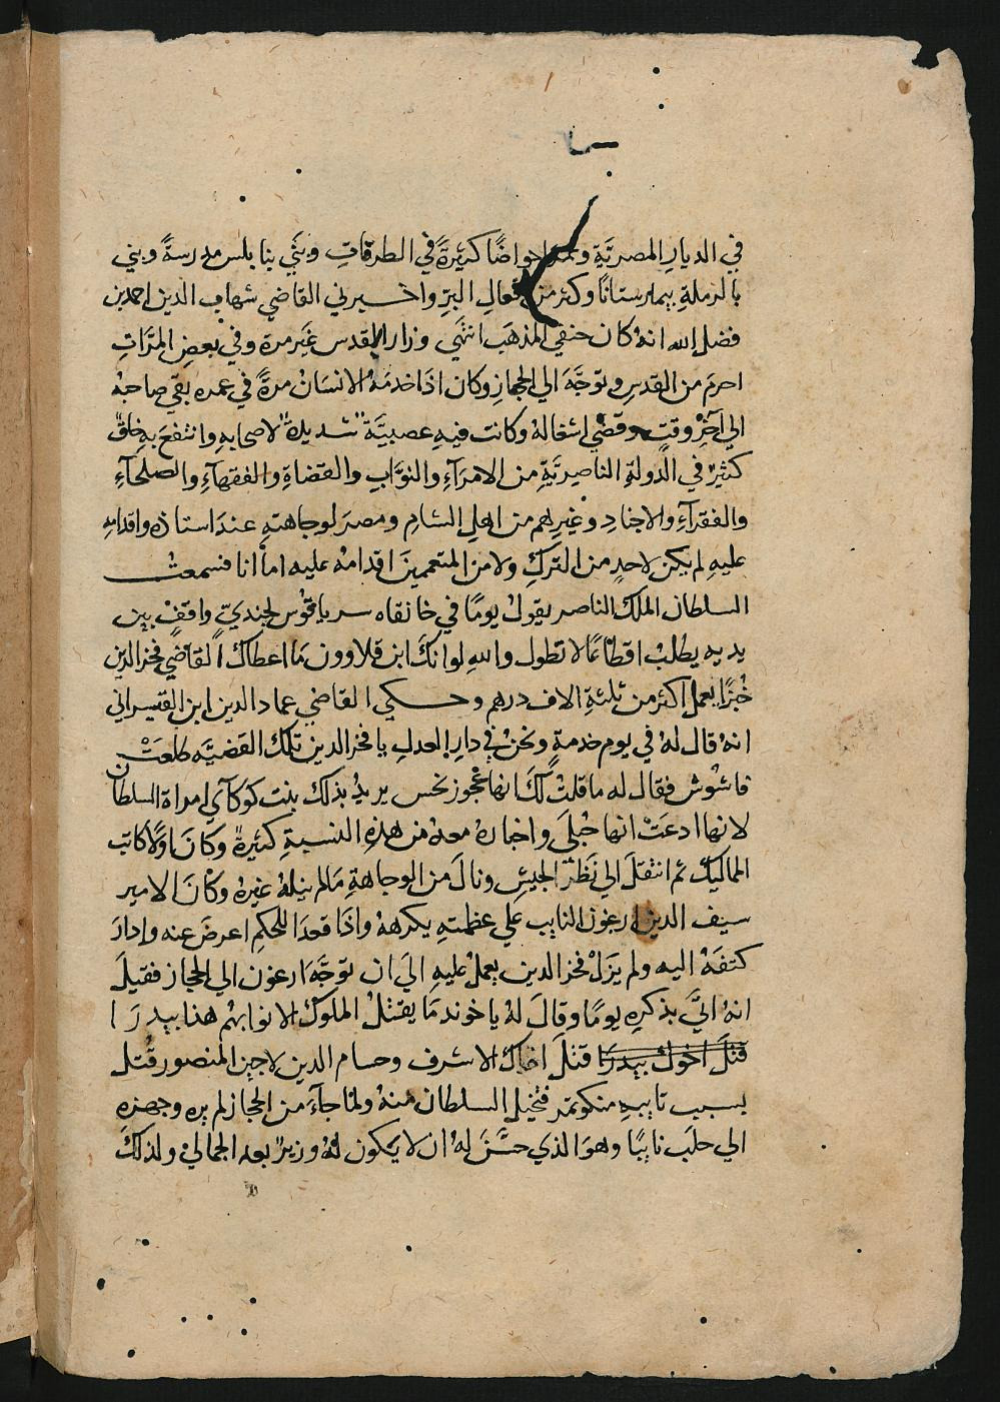 في الديارِ المصريَّةِ احواضًا كثيرةً في الطرقاتِ وبَنَي بنابلس مدرسةً وبني
بالرملةِ بيمارستانًا وكثر من افعالِ البرِّ واخبرني القاضي شهاب الدين احمد بن
فضل الله انهُ كان حنفي المذهَب انتهَي وزار المقدس غَير مرة وفي بعضِ المرَّاتِ
احرمَ من القدسِ وتوجَّهَ الي الحجازِ وكان اذا خدمَهُ الانسَانُ مرةً في عمره بقي صاحبهُ
الي آخرِ وقتٍ وقضَي اشغالهُ وكانت فيهِ عصبيَّة شديدة لاصحابهِ وانتفعَ بهِ خلقٌ
كثيرٌ في الدولةِ الناصريَّةِ من الامرآءِ والنوَّابِ والقضاةِ والفقهآءِ والصلحآءِ
والفقرآءِ والاجنادِ وغيرِهم من اهلِ الشامِ ومصرَ لوجاهتهِ عندَ استاذه واقدامهِ
عليهِ لم يكن لاحدٍ من التركِ ولا من المتعممينَ اقدامهُ عليه اما انا فسمعتُ
السلطان الملك الناصر يقولُ يومًا في خانقاه سرياقوس لجنديّ واقفٌ بين
يديه يطلب اقطاعًا لا تطول واللهِ لو انكَ ابن قلاوون مَا اعطاك القاضي فخر الدين
خُبزًا يعمل اكثر من ثلثةِ الاف درهم وحكي القاضي عماد الدين ابن القيسراني
انهُ قال لهُ في يوم خدمةٍ ونحنُ في دارِ العدلِ يا فخر الدين تلك القضيَّه طلعَتْ
فاشُوش فقال له ما قلتُ لكَ انها عجوز نحس يريدُ بذلك بنت كوكآي امراة السلطان
لانها ادعَتْ انها حُبلَي واخباره معهُ من هذهِ النسبةِ كثيرةٌ وكانَ اوّلًا كاتب
المماليك ثم انتقلَ الي نَظَرِ الجيشِ ونالَ من الوجاهةِ مَا لم ينلهُ غيرهُ وكانَ الامير
سيف الدين ارغون النايب علي عظمتهِ يكرههُ واذا قعدَ للحكمِ اعرضَ عنه وادارَ
كتفهُ اليه ولم يزلْ فخر الدين يعملُ عليهِ اليَ ان توجَّهَ ارغون الي الحجاز فقيلَ
انهُ اتيَ بذكرهِ يومًا وقالَ لهُ يا خوند مَا يقتلُ الملوكَ الا نوابهُم هذا بيدرَا
قتلَ اخوك بيدرا قتلَ اخاك الاشرف وحسام الدين لاجين المنصور قُتل
بسبب نايبهِ منكوتمر فتخيل السلطان منهُ ولمّا جآءَ من الحجازِ لم يره وجهزه
الي حلَب نايبًا وهوَ الذي حسَّنَ لهُ ان لا يكون لهُ وزيرٌ بعد الجمالي ولذلكَ